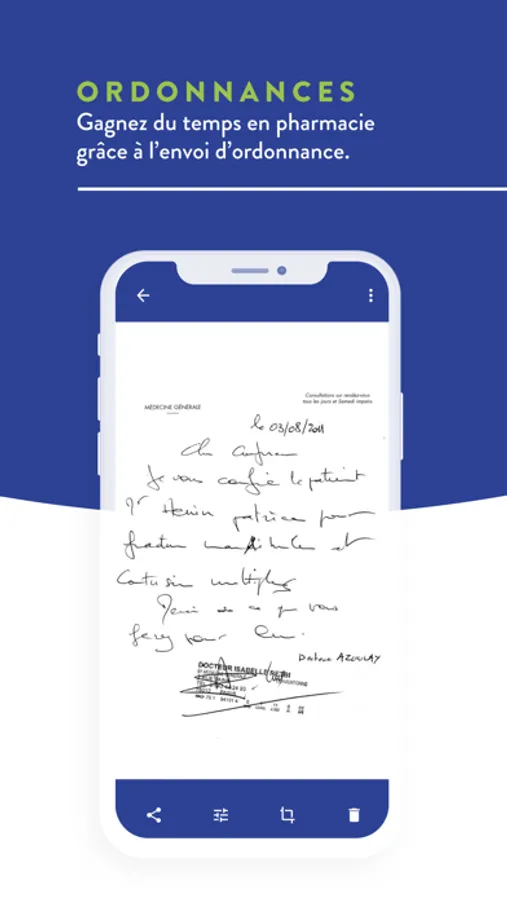 ORDONNANCES
Gagnez du temps en pharmacie
grâce à l'envoi d'ordonnance.
Consultations sur rendez-vous
tous les jours et Samedi impairs
MÉDECINE GÉNÉRALE
le 03/08/2011
Cher Confrère
Je vous confie le patient
Mr Henin patrice pour
fracture et
Contusion multiples
Merci de ce que vous
ferez pour lui.
Docteur AZOULAY
DOCTEUR ISABELLE